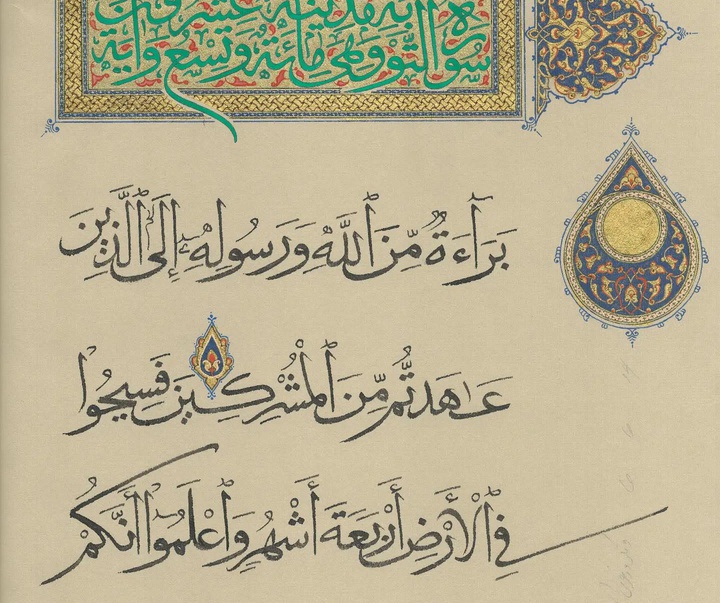 سورة التوبة مدنية وهي مائة وتسع وعشرون آية
بَرَآءَةٌ مِّنَ ٱللَّهِ وَرَسُولِهِۦٓ إِلَى ٱلَّذِينَ
عَـٰهَدتُّم مِّنَ ٱلْمُشْرِكِينَ فَسِيحُوا۟
فِى ٱلْأَرْضِ أَرْبَعَةَ أَشْهُرٍ وَٱعْلَمُوٓا۟ أَنَّكُمْ